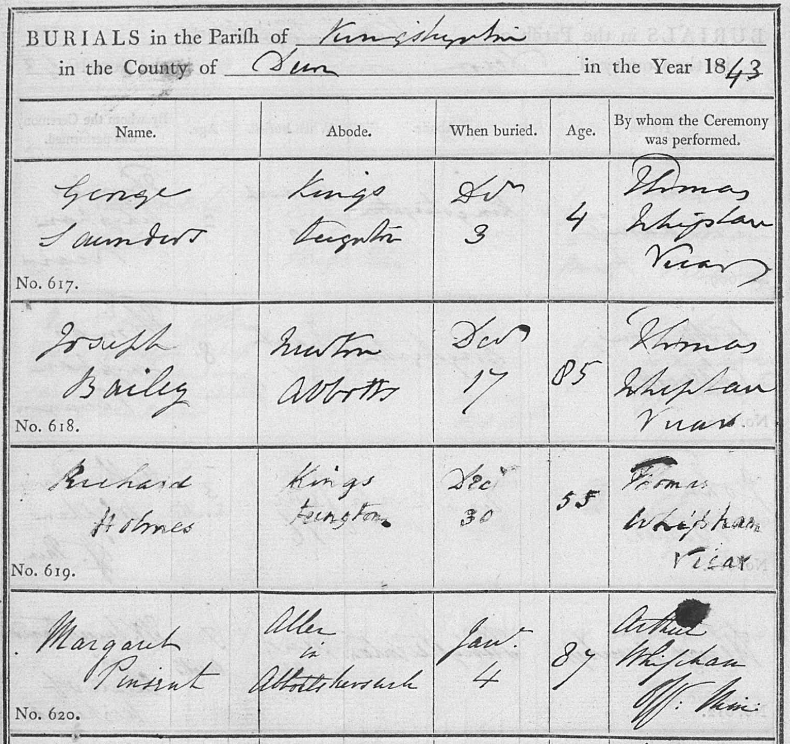 BURIALS in the Parish of Kingsteignton
in the County of Devon in the Year 1843
Name. Abode. When buried. Age. By whom the Ceremony was performed.
George Saunders
No. 617.
Kings Teignton
Decr 3
4
Thomas Whipham Vicar
Joseph Bailey
No. 618.
Newton Abbotts
Decr 17
85
Thomas Whipham Vicar
Richard Holmes
No. 619.
Kings teington
Decr 30
55
Thomas Whipham Vicar
Margaret Pinsent
No. 620.
Aller in Abbotskerswell
Janr 4
87
Arthur Whipham Off: Min: